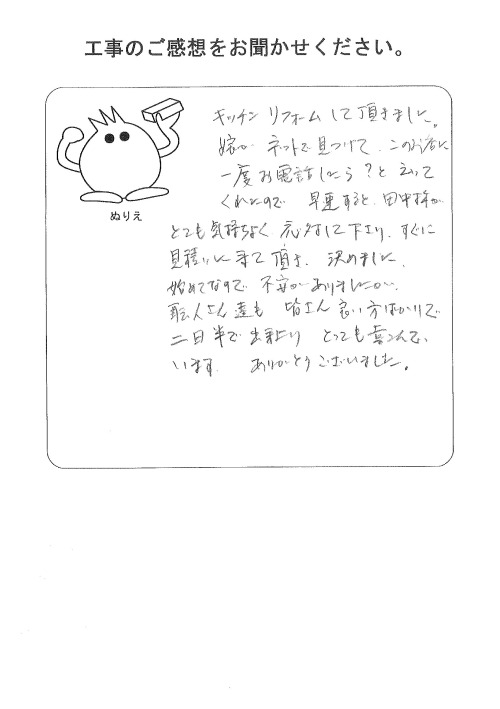 工事のご感想をお聞かせください。
キッチン リフォームして頂きました。
嫁が ネットで見つけて、このお店に
一度お電話したら?と言って
くれたので 早速すると、田中様が
とても気持ちよく 応対して下さり、すぐに
見積りに来て頂き、決めました。
始めてなので 不安がありましたが、
職人さん達も 皆さん良い方ばかりで
二日半で出来上り とっても喜こんで
います。 ありがとうございました。
ぬりえ